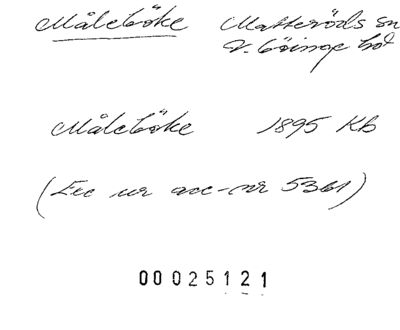 Måleböke Matteröds sn
V. Göinge hd
Måleböke 1895 Kb
(Exc ur acc-nr 5361)
00025121